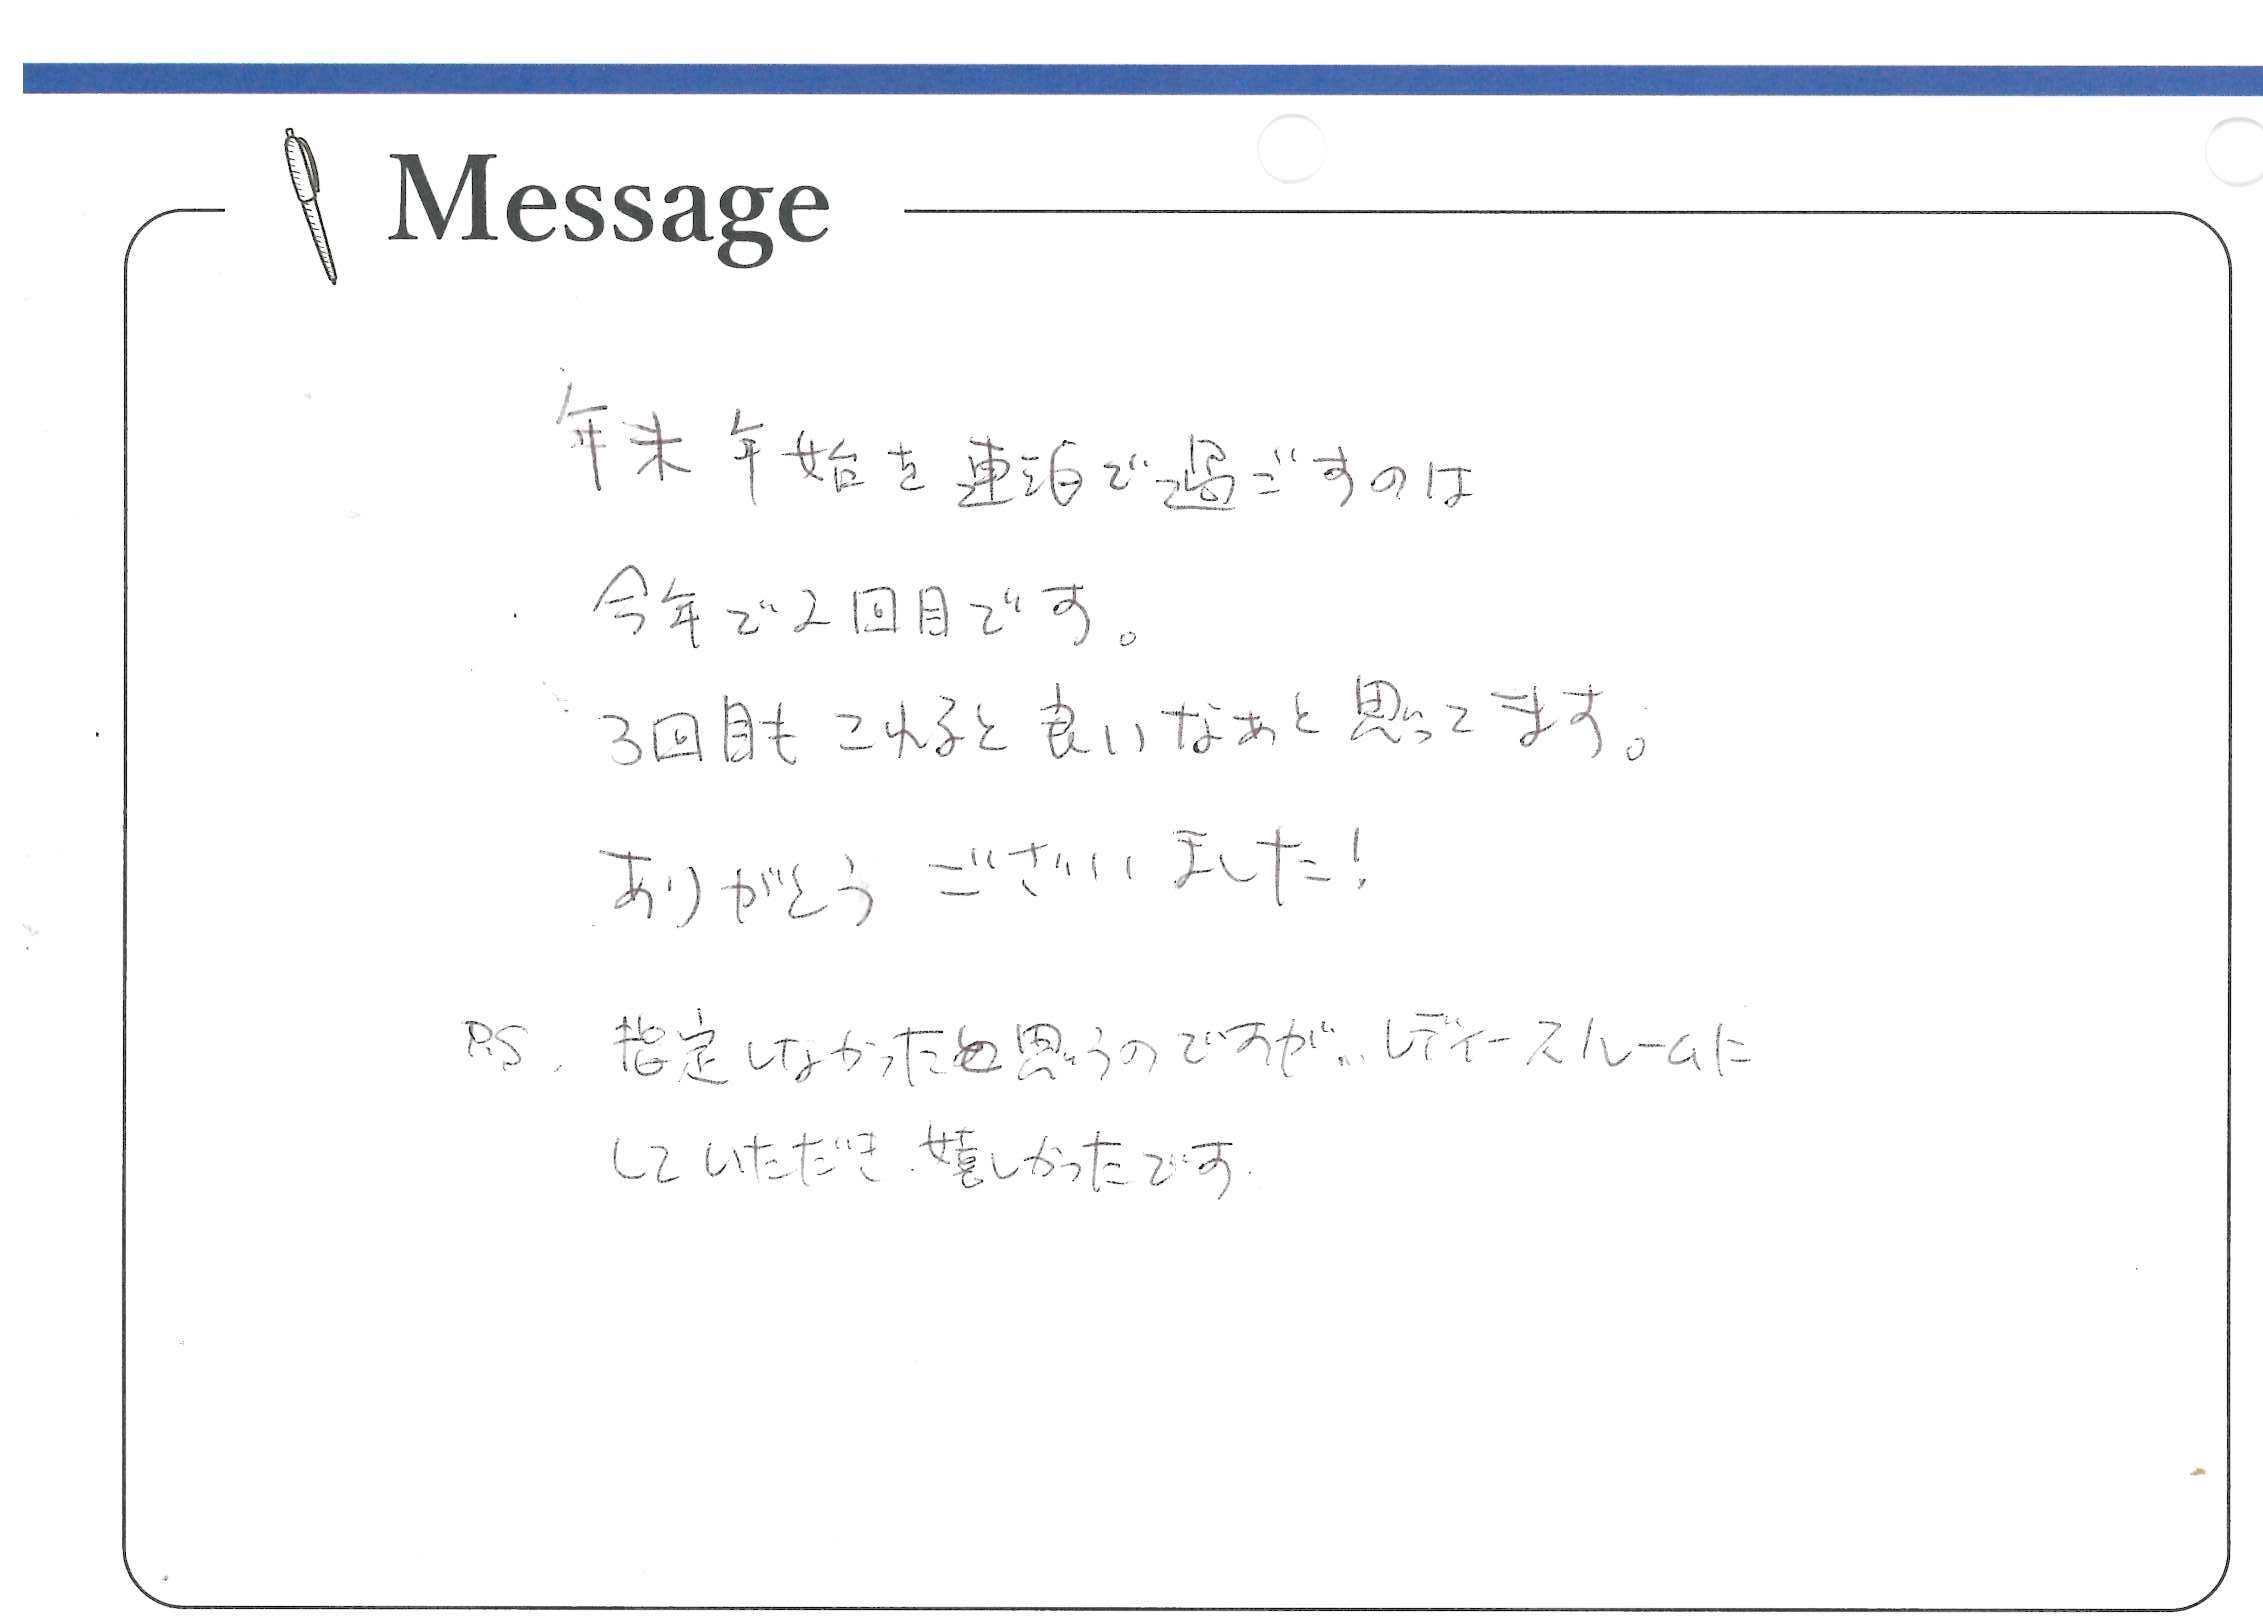 Message
年末年始を連泊で過ごすのは
今年で2回目です。
3回目もこれると良いなぁと思ってます。
ありがとうございました!
P.S. 指定しなかったと思うのですが… レディースルームに
していただき、嬉しかったです.